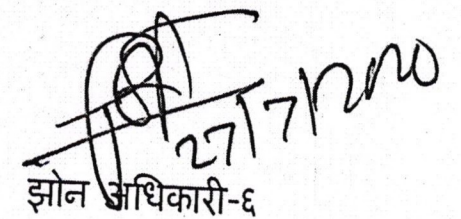 27/7/2020
झोन अधिकारी-६